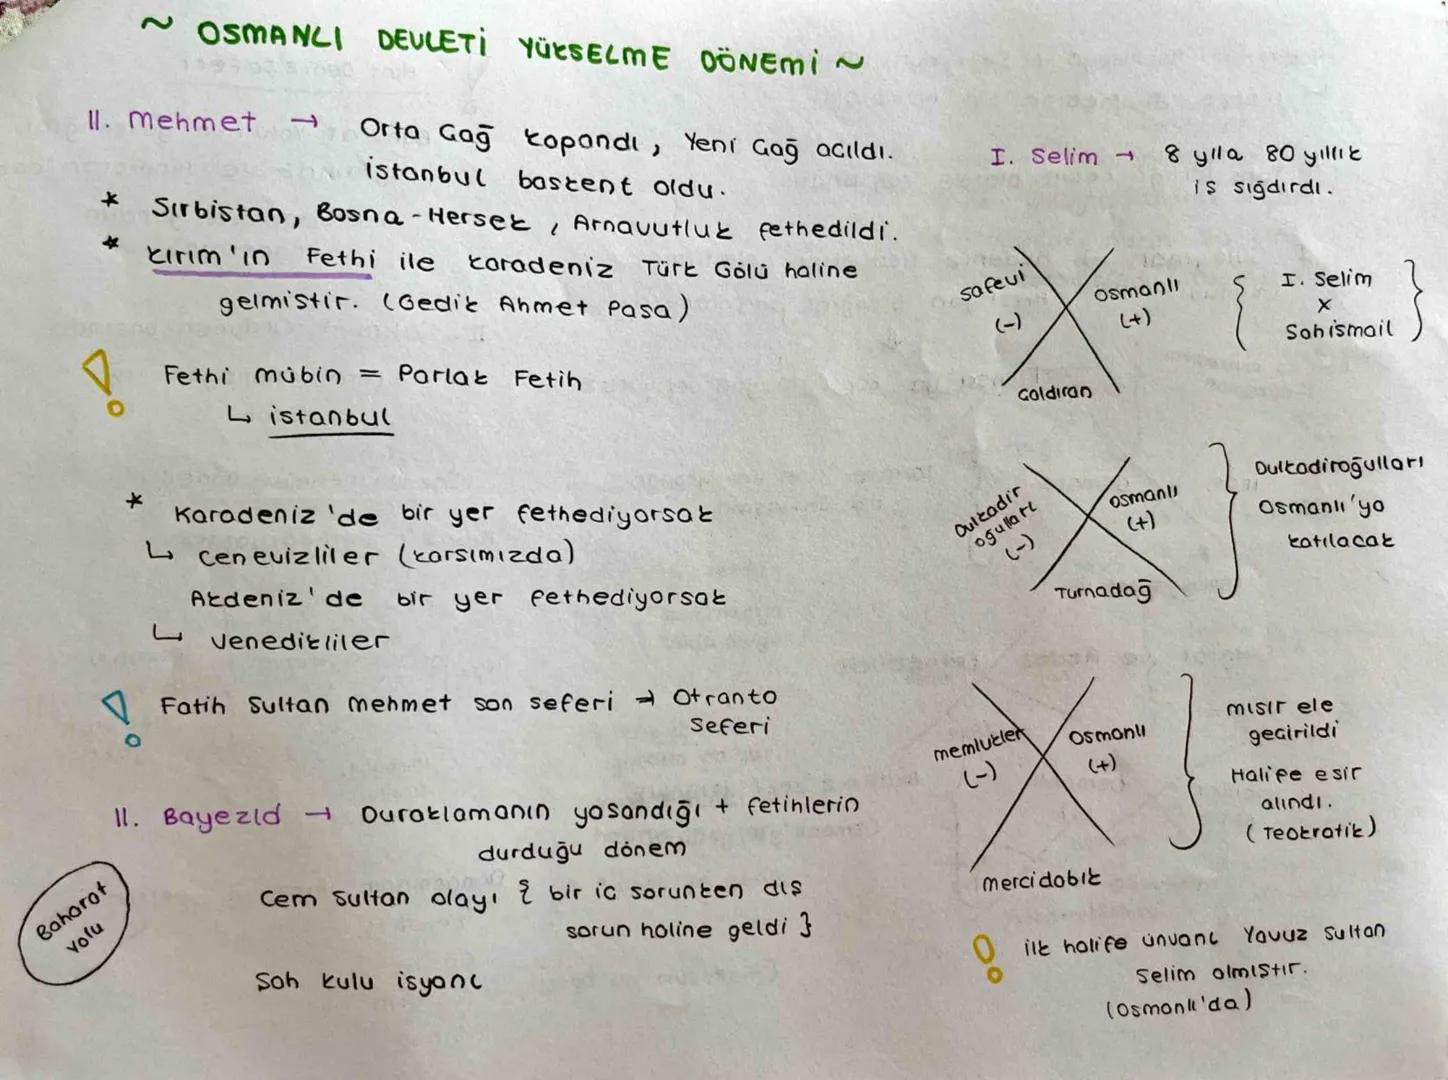 ~ OSMANLI DEVLETİ YÜKSELME DÖNEMİ ~
II. Mehmet → Orta Çağ kapandı, Yeni Çağ açıldı.
İstanbul başkent oldu.
* Sırbistan, Bosna-Hersek, Arnavutluk fethedildi.
* Kırım'ın Fethi ile Karadeniz Türk Gölü haline
gelmiştir. (Gedik Ahmet Paşa)
! Fethi mübin = Parlak Fetih
↳ İstanbul
* Karadeniz'de bir yer fethediyorsak
↳ Cenevizliler (karşımızda)
Akdeniz'de bir yer fethediyorsak
↳ Venedikliler
! Fatih Sultan Mehmet son seferi → Otranto
Seferi
II. Bayezid → Duraklamanın yaşandığı + fetihlerin
durduğu dönem
Cem Sultan olayı { bir iç sorunken dış
sorun haline geldi }
Şah kulu isyanı
Baharat
Yolu
I. Selim → 8 yıla 80 yıllık
iş sığdırdı.
Safevi
(-)
Osmanlı
(+)
Çaldıran
{ I. Selim
x
Şahismail }
Dulkadir
oğulları
(-)
Osmanlı
(+)
Turnadağ
} Dulkadiroğulları
Osmanlı'ya
katılacak
Memlükler
(-)
Osmanlı
(+)
Mercidabık
} Mısır ele
geçirildi
Halife esir
alındı.
(Teokratik)
! İlk halife ünvanı Yavuz Sultan
Selim olmıştır.
(Osmanlı'da)